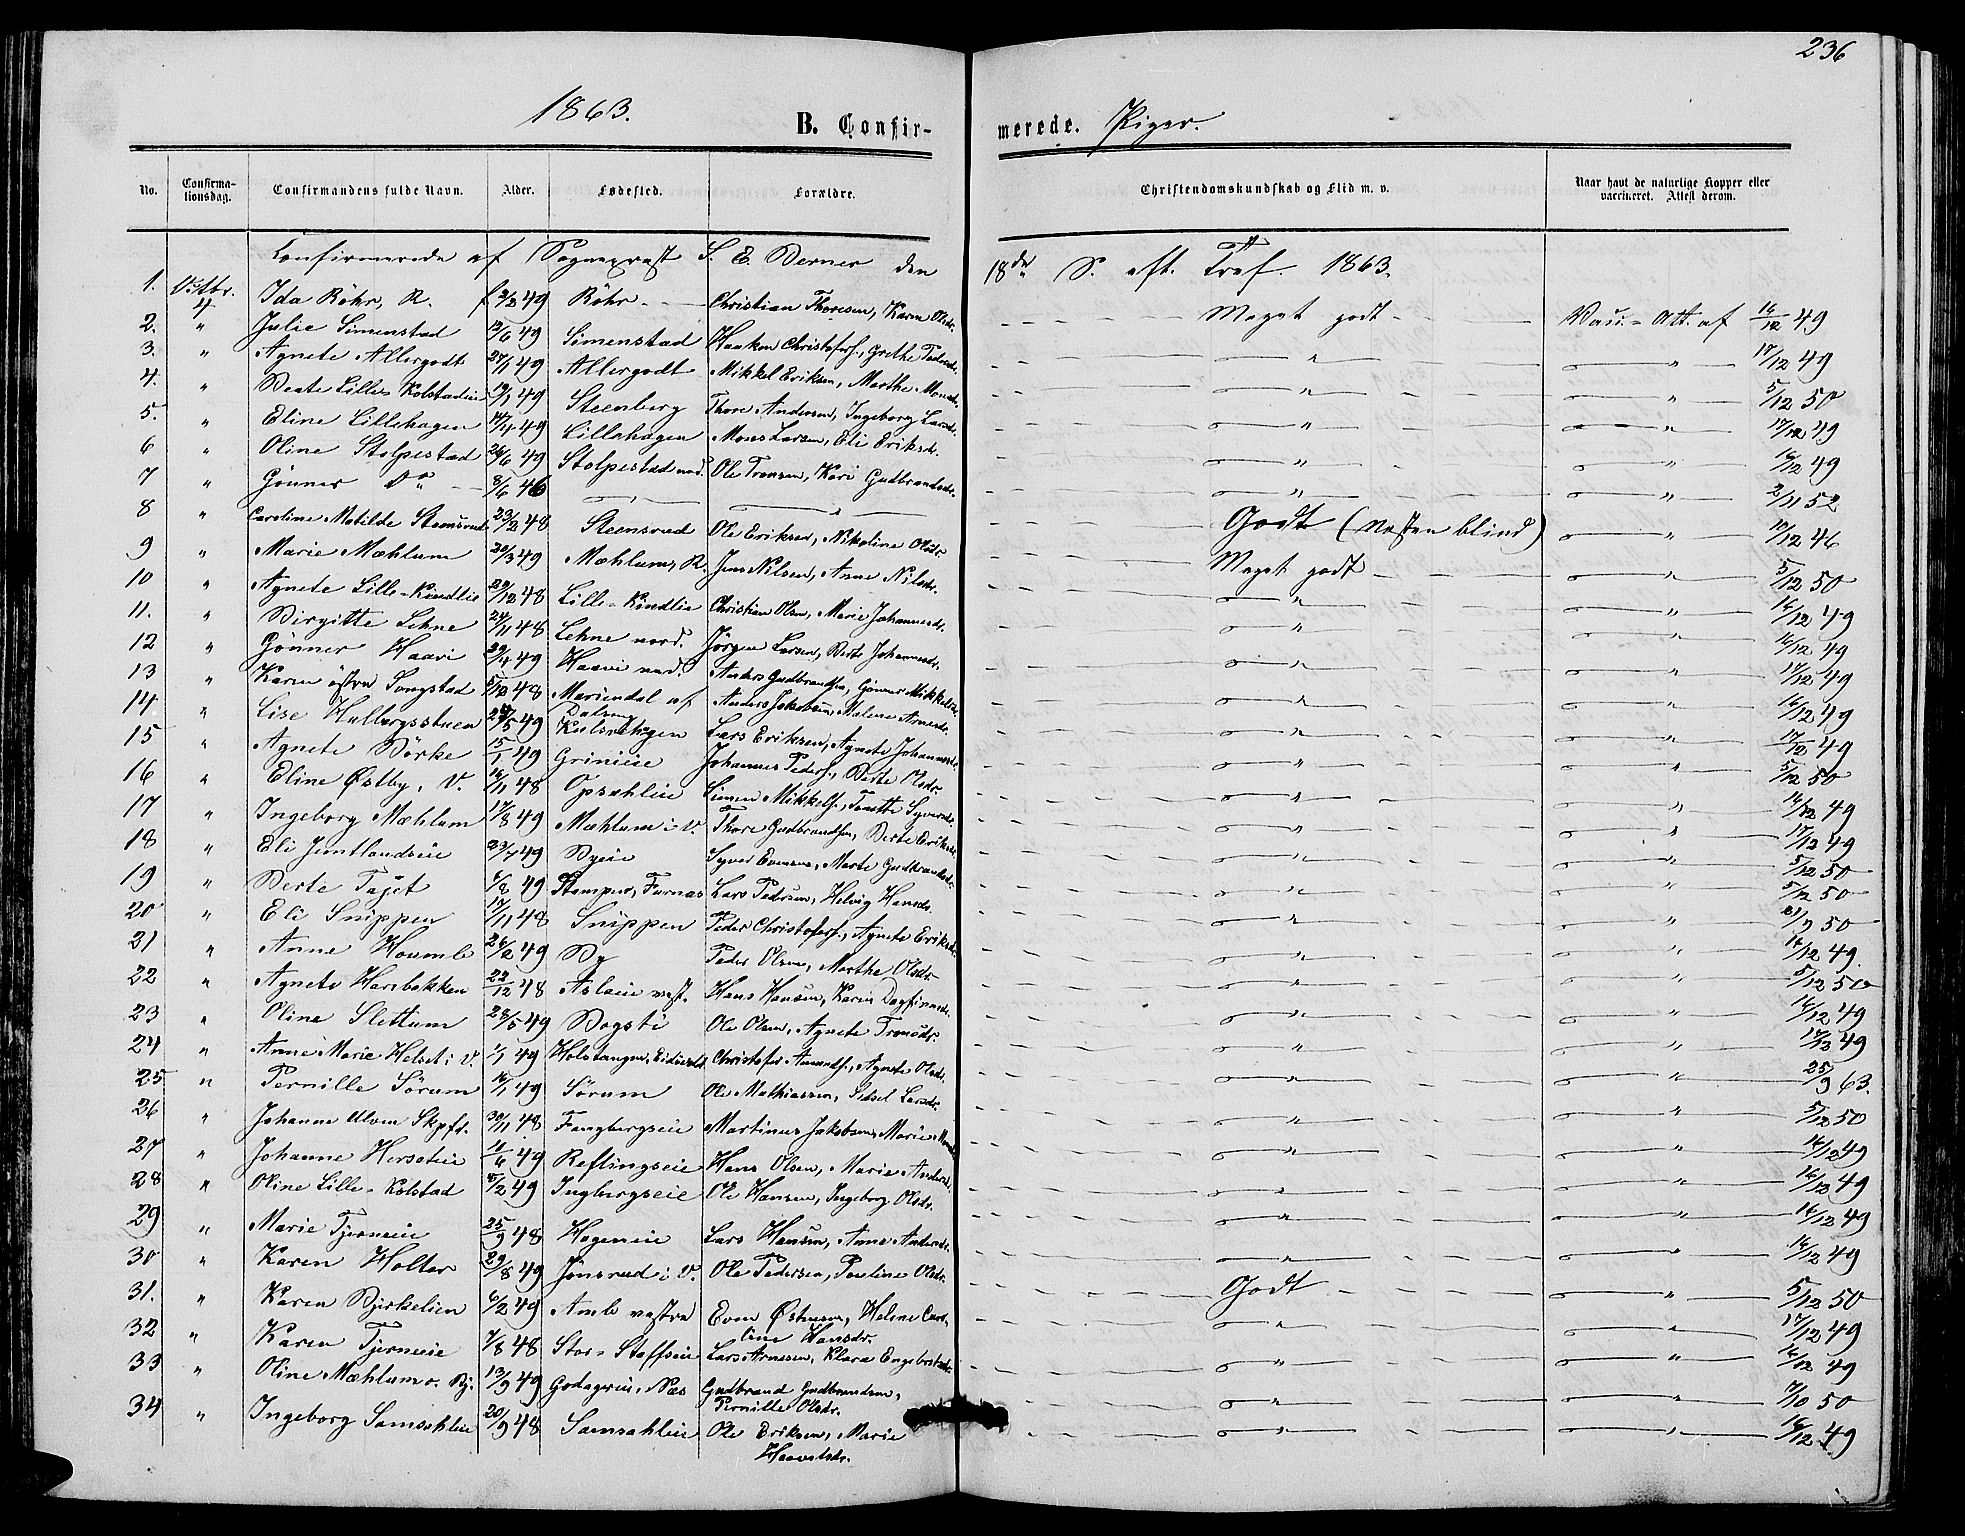 236
1863.
B. Confirmerede. Piger.
No. Confirmationsdag. Confirmandens fulde Navn. Alder. Fødested. Forældre. Christendomskundskab og Flid m. v. Naar havt de naturlige Kopper eller vaccineret. Attest derom.
Confirmerede af Sogneprest S. E. Berner den 18de S. eft. Tref. 1863.
1. Octbr. 4 Ida Röhr, R. 49 Röhr Christian Thoresen, Karen Olsdr. Meget godt Vacc. Att. af 16/12 49
2. " Julie Simenstad 12/6 49 Simenstad Haaken Christofers., Grethe Pedersdr. " " 17/12 49
3. " Agnete Allergodt 27/1 49 Allergodt Mikkel Eriksen, Marthe Monsdr. " " 5/12 50
4. " Beate Lille-Kolstadeie 19/1 49 Steenberg Thore Andersen, Ingeborg Larsdr. " " 17/12 49
5. " Eline Lillehagen 14/4 49 Lillehagen Mons Larsen, Eli Eriksdr. " " 16/12 49
6 " Oline Stolpestad 26/6 49 Stolpestad nod. Ole Tronsen, Kari Gudbrandsdr. " " 2/11 52
7 " Gønner Do 8/6 46 " Godt (næsten blind) " 19/12 46
8 " Caroline Matilde Steensrud 23/2 48 Steensrud Ole Eriksen, Nikoline Olsdr. Meget godt " 5/12 50
9 " Marie Mæhlum 20/3 49 Mæhlum, R. Jens Nilsen, Anne Nilsdr. " " 16/12 49
10 " Agnete Lille-Kindlie 29/12 48 Lille-Kindlie Christian Olsen, Marie Johannesdr. " " 16/12 49
11. " Birgitte Lehne 24/11 48 Lehne nord. Jörgen Larsen, Berte Johannesdr. " " 17/12 49
12 " Gönner Haave 29/4 49 Haave nord. Anders Gudbrandsen, Gönner Mikkelsdr. " " 16/12 49
13 " Karen østre Longstad 5/12 48 Mariendal af Dalseng Anders Jakobsen, Malene Arnesdr. " " 17/12 49
14 " Lise Hulbergsstuen 5 49 Lars Eriksen, Agnete Johannesdr. " " 5/12 50
15 " Agnete Börke 15/1 49 Grinieie Johannes Peders., Berte Olsdr. " " 16/12 49
16 " Eline Østby, V. 16/11 48 Opsahleie Simen Mikkels., Syversdr. " " 17/12 49
17 " Ingeborg Mæhlum 17/8 49 Mæhlum i V. Thore Gudbrandsen, Berte Eriksdr. " " 5/12 50
18 " Eli Jemtlandseie 23/7 49 Byeie Syver Evensen, Marte Gudbrandsdr. " " 5/12 50
19 " Berte Tajet 6/8 49 Stampen, Furnæs Lars Pedersen, Helvig Hansdr. " " 9 50
20 " Eli Snippen 17/11 48 Snippen Peder Christofers., Agnete Eriksdr. " " 16/12 49.
21 " Anne Houmb 26/2 49 By Peder Olsen, Marthe Olsdr. " " 5/12 50
22 " Agnete Harebakken 22/12 48 Aslaeie vest. Hans Hansen, Karen Dagfinnsdr. " " 16/12 49
23 " Oline Slettum 28/5 49 Bogsti Ole Olsen, Agnete Tronsdr. " " 17/12 49
24 " Anne Marie Helset i V. 1/1 49 Holstangen, Eidsvold Christofer Amunds., Agnete Olsdr. " " 25/9 63.
25 " Pernille Sörum 16/1 49 Sörum Ole Mathiassen, Sidsel Larsdr. " " 5/12 50
26 " Johanne Ulven Skpfr. 30/11 48 Fangbergseie Martinus Jakobsen, Marie " " 16/12 49
27 " Johanne Hersateie 11/6 49 Reflingseie Hans Olsen, Marie Andersdr. " " 16/12 49
28 " Oline Lille-Kolstad 2 49 Ingbergseie Ole Hansen, Ingeborg Olsdr. " " 16/12 49
29 " Marie Tjerneie 25/9 48 Hageneie Lars Hansen, Anne Andersdr. " " 16/12 49
30 " Karen Holter 29/8 49 Jönsrud i V. Ole Pedersen, Pauline Olsdr. Godt " 5/12 50
31. " Karen Bjerkelien 6/2 49 Amb vestre Even Østensen, Helene Caroline Hansdr. " " 17/12 49
32 " Karen Tjerneie 7/8 48 Stor-Staffseie Lars Arnesen, Klara Engebretsdr. " " 16/12 49
33 " Oline Mæhlum o. Bj. 13/9 49 Godagereie, Næs Gudbrand Gudbrandsen, Pernille Olsdr. " " 7/10 50
34 " Ingeborg Samsahleie 20/9 48 Samsahleie Ole Eriksen, Marie Haavelsdr. " " 16/12 49